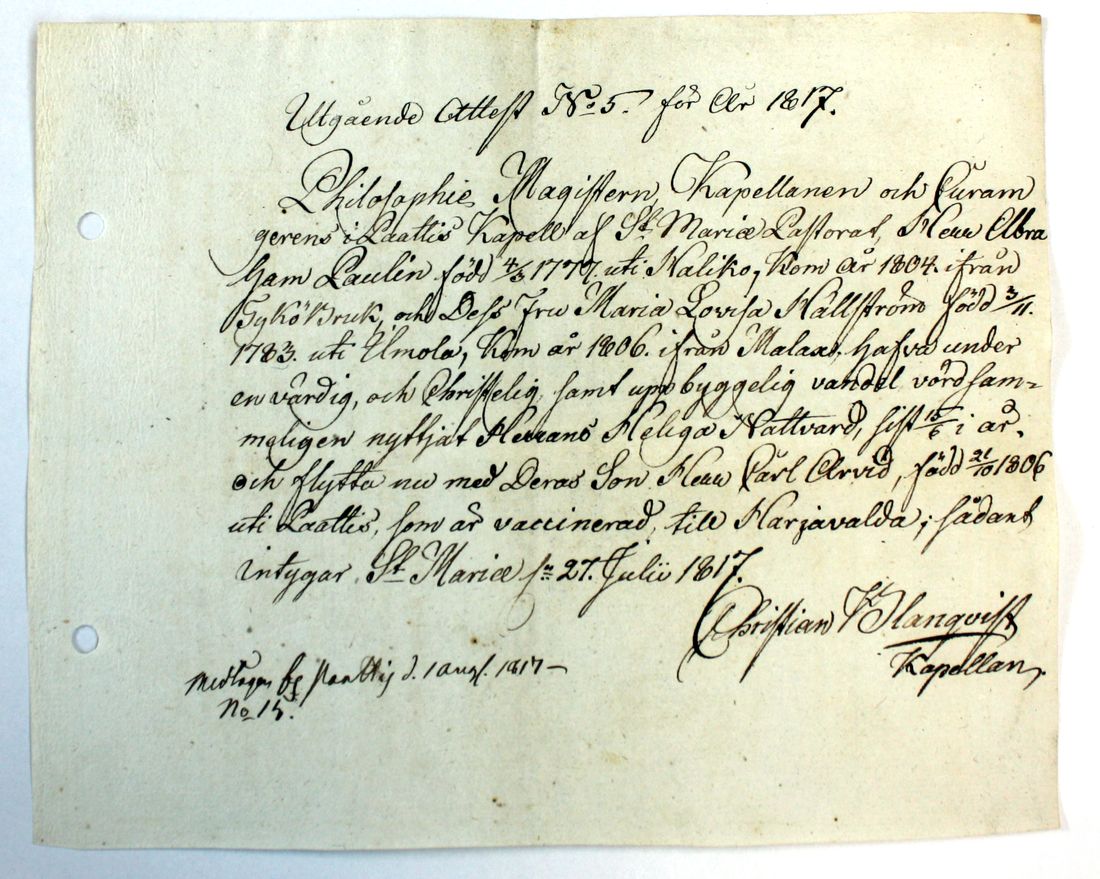 Utgående Attest No 5. för År 1817.
Philosophie Magistern, Kapellanen och Curam
gerens i Paattis Kapell af St. Mariæ Pastorat, Herr Abra
ham Paulin född 4/3 1777. uti Haliko, kom år 1804. ifrån
Tykö Bruk, och Dess Fru Maria Lovisa Hällström född 3/11.
1783. uti Ilmola, kom år 1806. ifrån Malax, hafva under
en värdig, och Christelig samt uppbyggelig vandel vördsam=
meligen nyttjat Herrans Heliga Nattvard, sist 15/6 i år.
och flytta nu med Deras Son Herr Carl Arvid, född 21/10 1806
uti Paattis, som är vaccinerad, till Harjavalda; sådant
intygar St. Mariæ 27. Julii 1817.
Christian Blanqvist
Kapellan.
Paattis d. 1 aug. 1817
No 15.